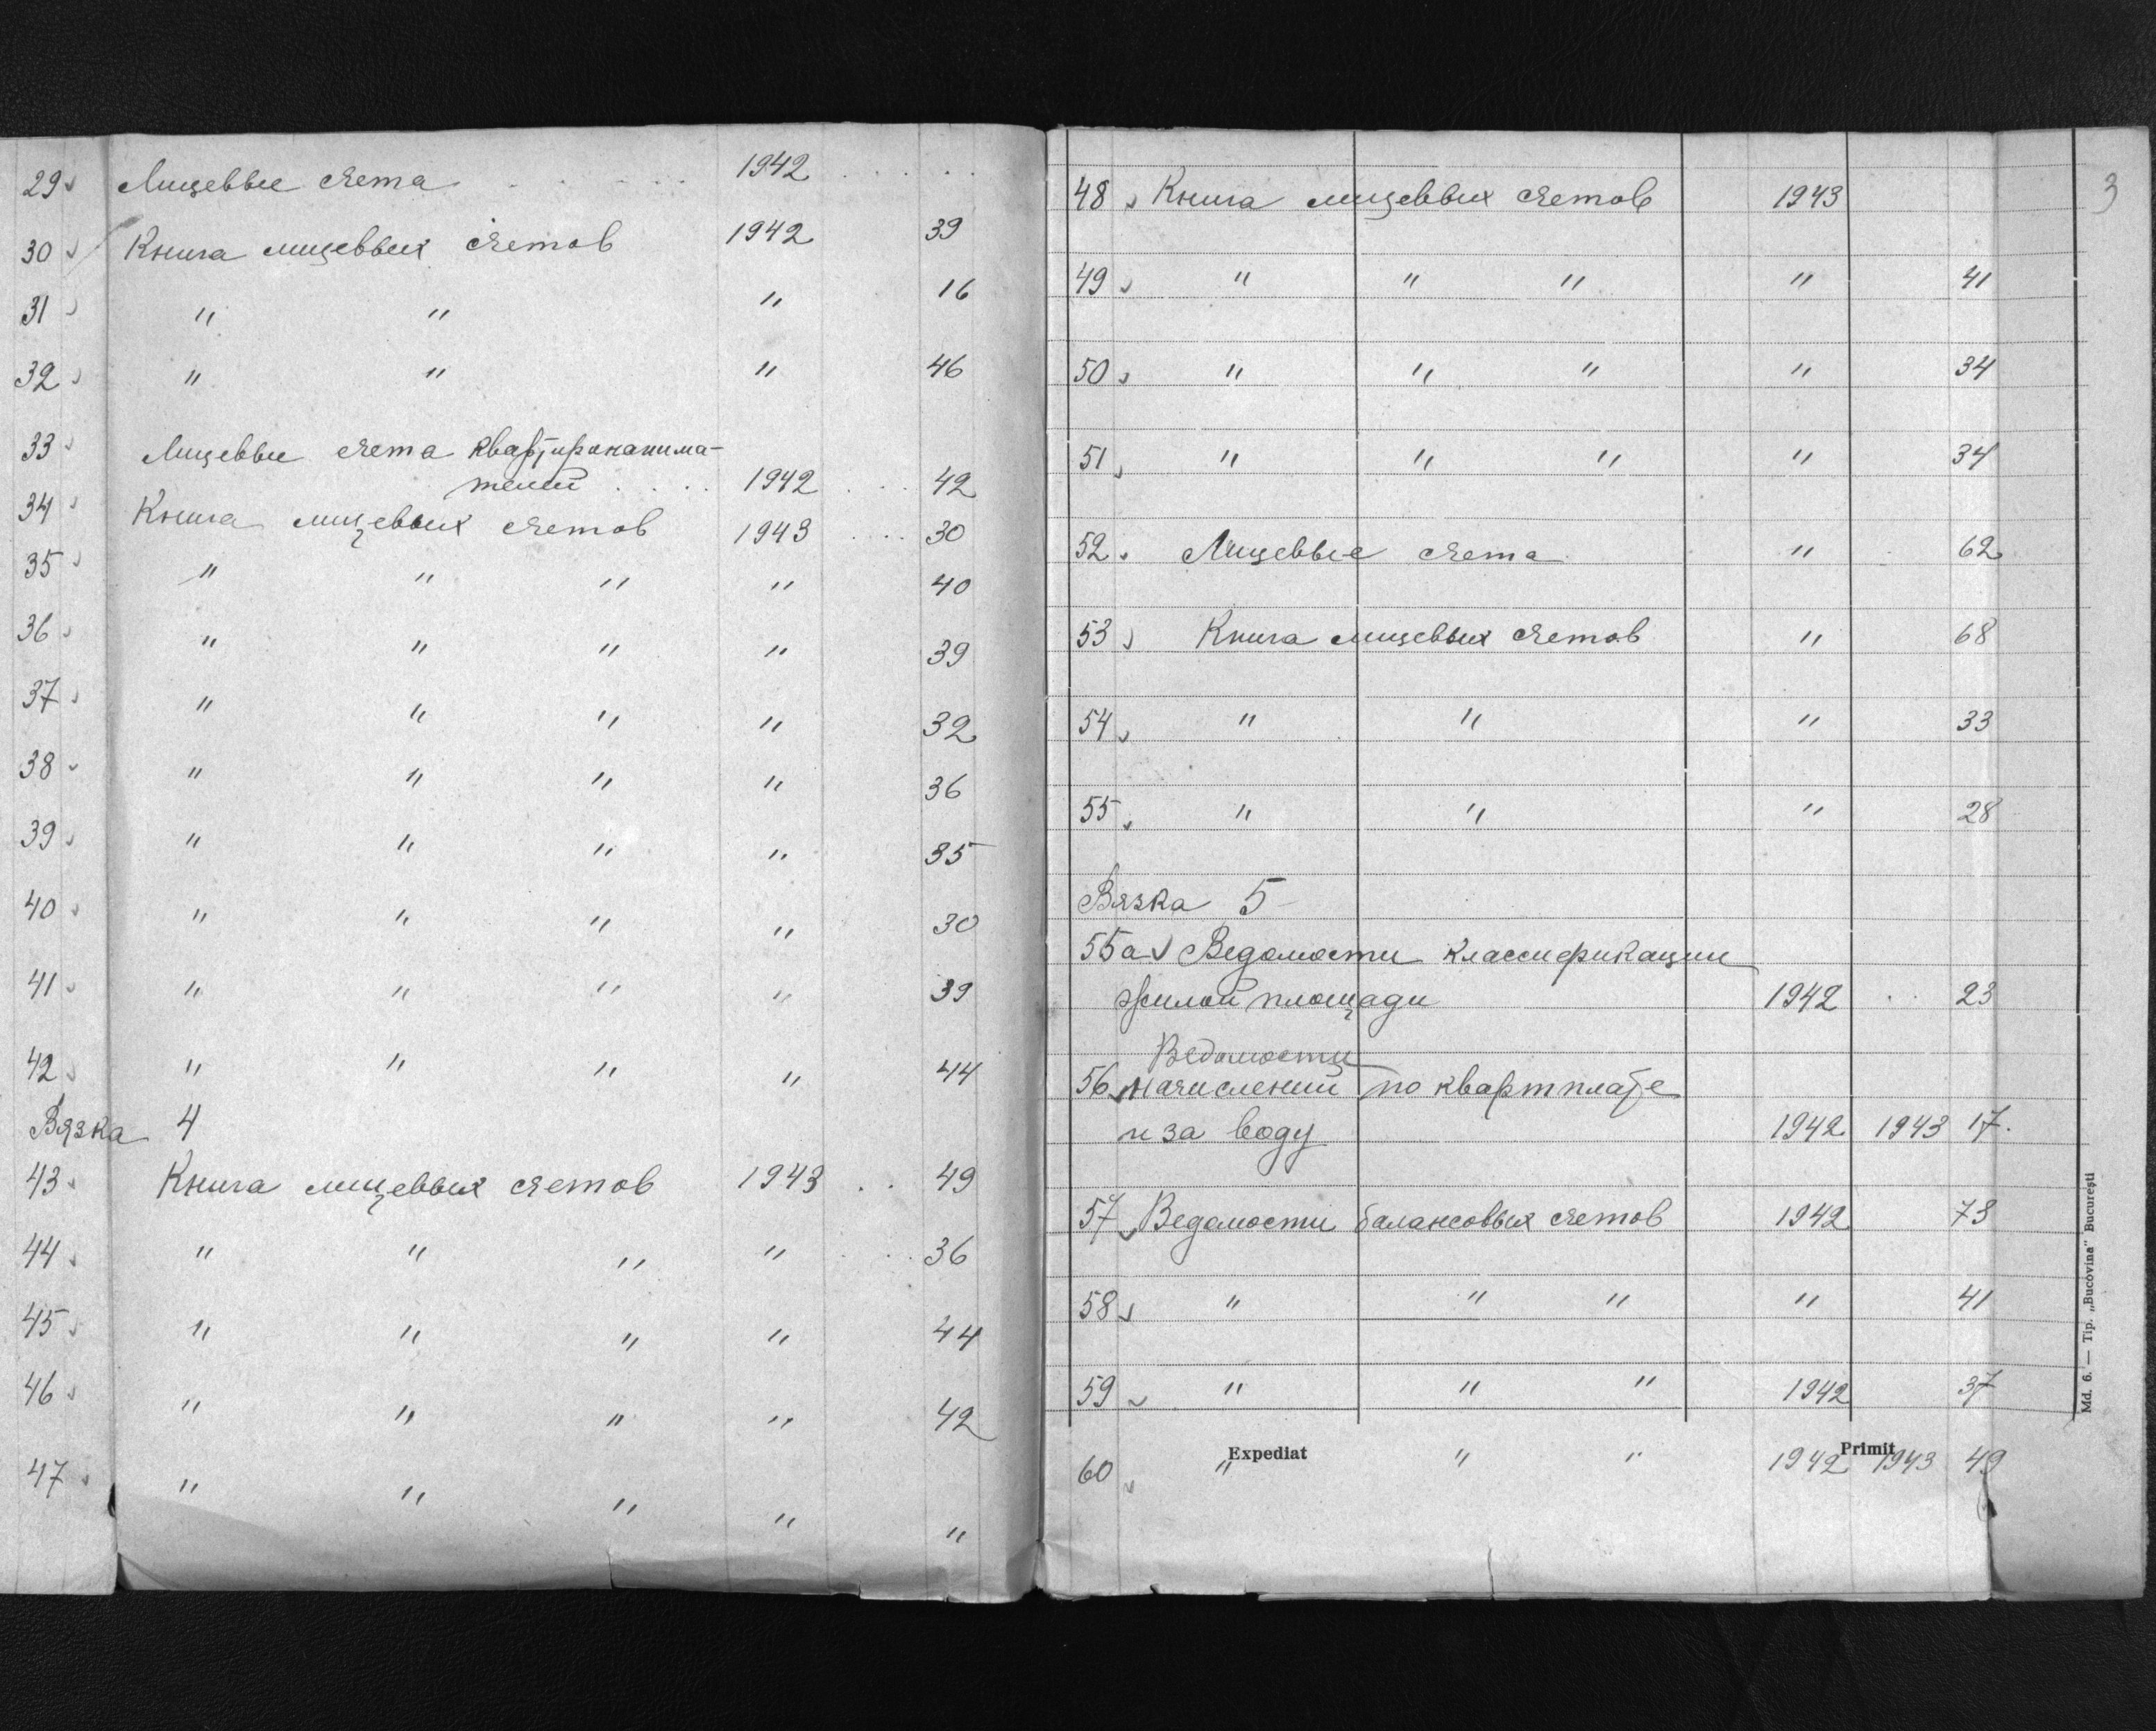 29 Лицевые счета . . . . . 1942 . . . . .
30 Книга лицевых счетов 1942 39
31 " " " 16
32 " " " 46
33 Лицевые счета квартиронанима-
телей . . . . 1942 . . . 42
34 Книга лицевых счетов 1943 . . . . 30
35 " " " " 40
36 " " " " 39
37 " " " " 32
38 " " " " 36
39 " " " " 35
40 " " " " 30
41 " " " " 39
42 " " " " 44
Вязка 4
43 Книга лицевых счетов 1943 . . 49
44 " " " " . . . 36
45 " " " " 44
46 " " " " 42
47 " " " " "
3
48 Книга лицевых счетов 1943
49 " " " " 41
50 " " " " 34
51 " " " " 34
52 Лицевые счета " 62
53 Книга лицевых счетов " 68
54 " " " 33
55 " " " 28
Вязка 5
55а Ведомости классификации
жилой площади 1942 . . 23
Ведомости
56 начислений по квартплате
и за воду 1942 1943 17.
57 Ведомости балансовых счетов 1942 73
58 " " " " 41
59 " " " 1942 37
Expediat Primit
60 " " " 1942 1943 49
Md. 6. — Tip. „Bucovina" Bucureşti